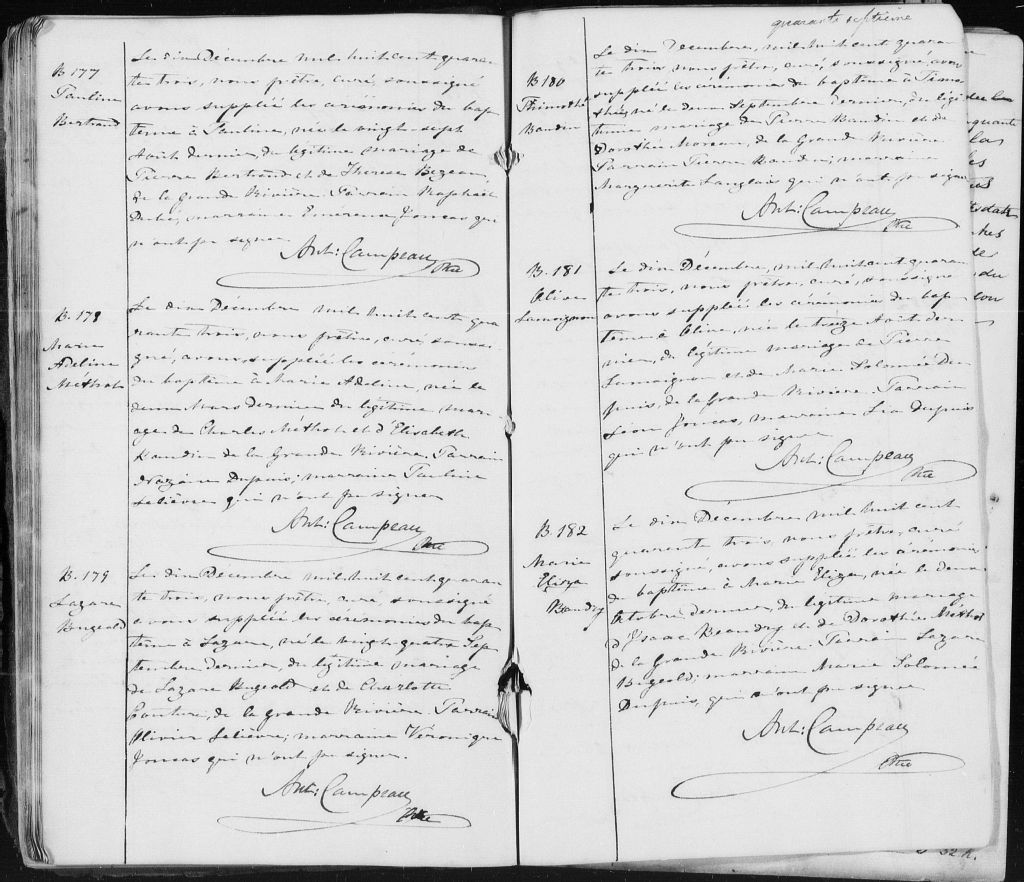 B. 177
Pauline
Bertrand
Le dix Décembre mil huit cent quaran
te trois, nous prêtre, curé, soussigné
avons suppléé les cérémonies du bap
tême à Pauline, née le vingt-sept
Août dernier, du légitime mariage de
Pierre Bertrand et de Therese Bezeau,
de la Grande Rivière. Parrain Raphaël
Dubé, marraine Emérence Joncas qui
n'ont pu signer
Ant: Campeau
Ptre
B. 178
Marie
Adeline
Méthot
Le dix Décembre mil huit cent qua
rante trois, nous prêtre, curé soussi
gné, avons suppléé les cérémonies
du baptême à Marie Adeline, née le
deux Mars dernier du légitime mari
age de Charles Méthot et d'Elisabeth
Baudin de la Grande Rivière. Parrain
Nazaire Dupuis; marraine Pauline
Lelièvre qui n'ont pu signer
Ant: Campeau
Ptre
B. 179
Lazare
Bugeold
Le dix Décembre mil huit cent quaran
te trois, nous prêtre, curé, soussigné
avons suppléé les cérémonies du bap
tême à Lazare, né le vingt quatre Sep
tembre dernier, du légitime mariage
de Lazare Bugeold et de Charlotte
Couture, de la grande Rivière. Parrain
Olivier Lelièvre; marraine Véronique
Joncas qui n'ont pu signer.
Ant: Campeau
Ptre
quarante septième
B. 180
Thimothé
Baudin
Le dix Décembre, mil huit cent quaran
te trois, nous prêtre, curé, soussigné, avons
suppléé les cérémonies du baptême à Timo
thé, né le deux Septembre dernier, du légi
time mariage de Pierre Baudin et de
Dorothée Moreau, de la Grande Rivière
Parrain Pierre Baudin; marraine
Marguerite Langlais qui n'ont pu signer
Ant: Campeau
Ptre
B. 181
Olive
Lamaignon
Le dix Décembre, mil huit cent quaran
te trois, nous prêtre, curé, soussigné
avons suppléé les cérémonies du bap
tême à Olive, née le treize Août der
nier, du légitime mariage de Pierre
Lamaignon et de Marie Salomée Du
puis, de la Grande Rivière. Parrain
Léon Joncas, marraine Léa Dupuis
qui n'ont pu signer
Ant: Campeau
Ptre
B. 182
Marie
Eliza
Baudry
Le dix Décembre mil huit cent
quarante trois, nous prêtre, curé
soussigné, avons suppléé les cérémonies
du baptême à Marie Eliza, née le deux
Octobre dernier, du légitime mariage
d'Isaac Beaudry et de Dorothée Méthot
de la Grande Rivière. Parrain Lazare
Bugeold; marraine Marie Salomée
Dupuis, qui n'ont pu signer
Ant: Campeau
Ptre